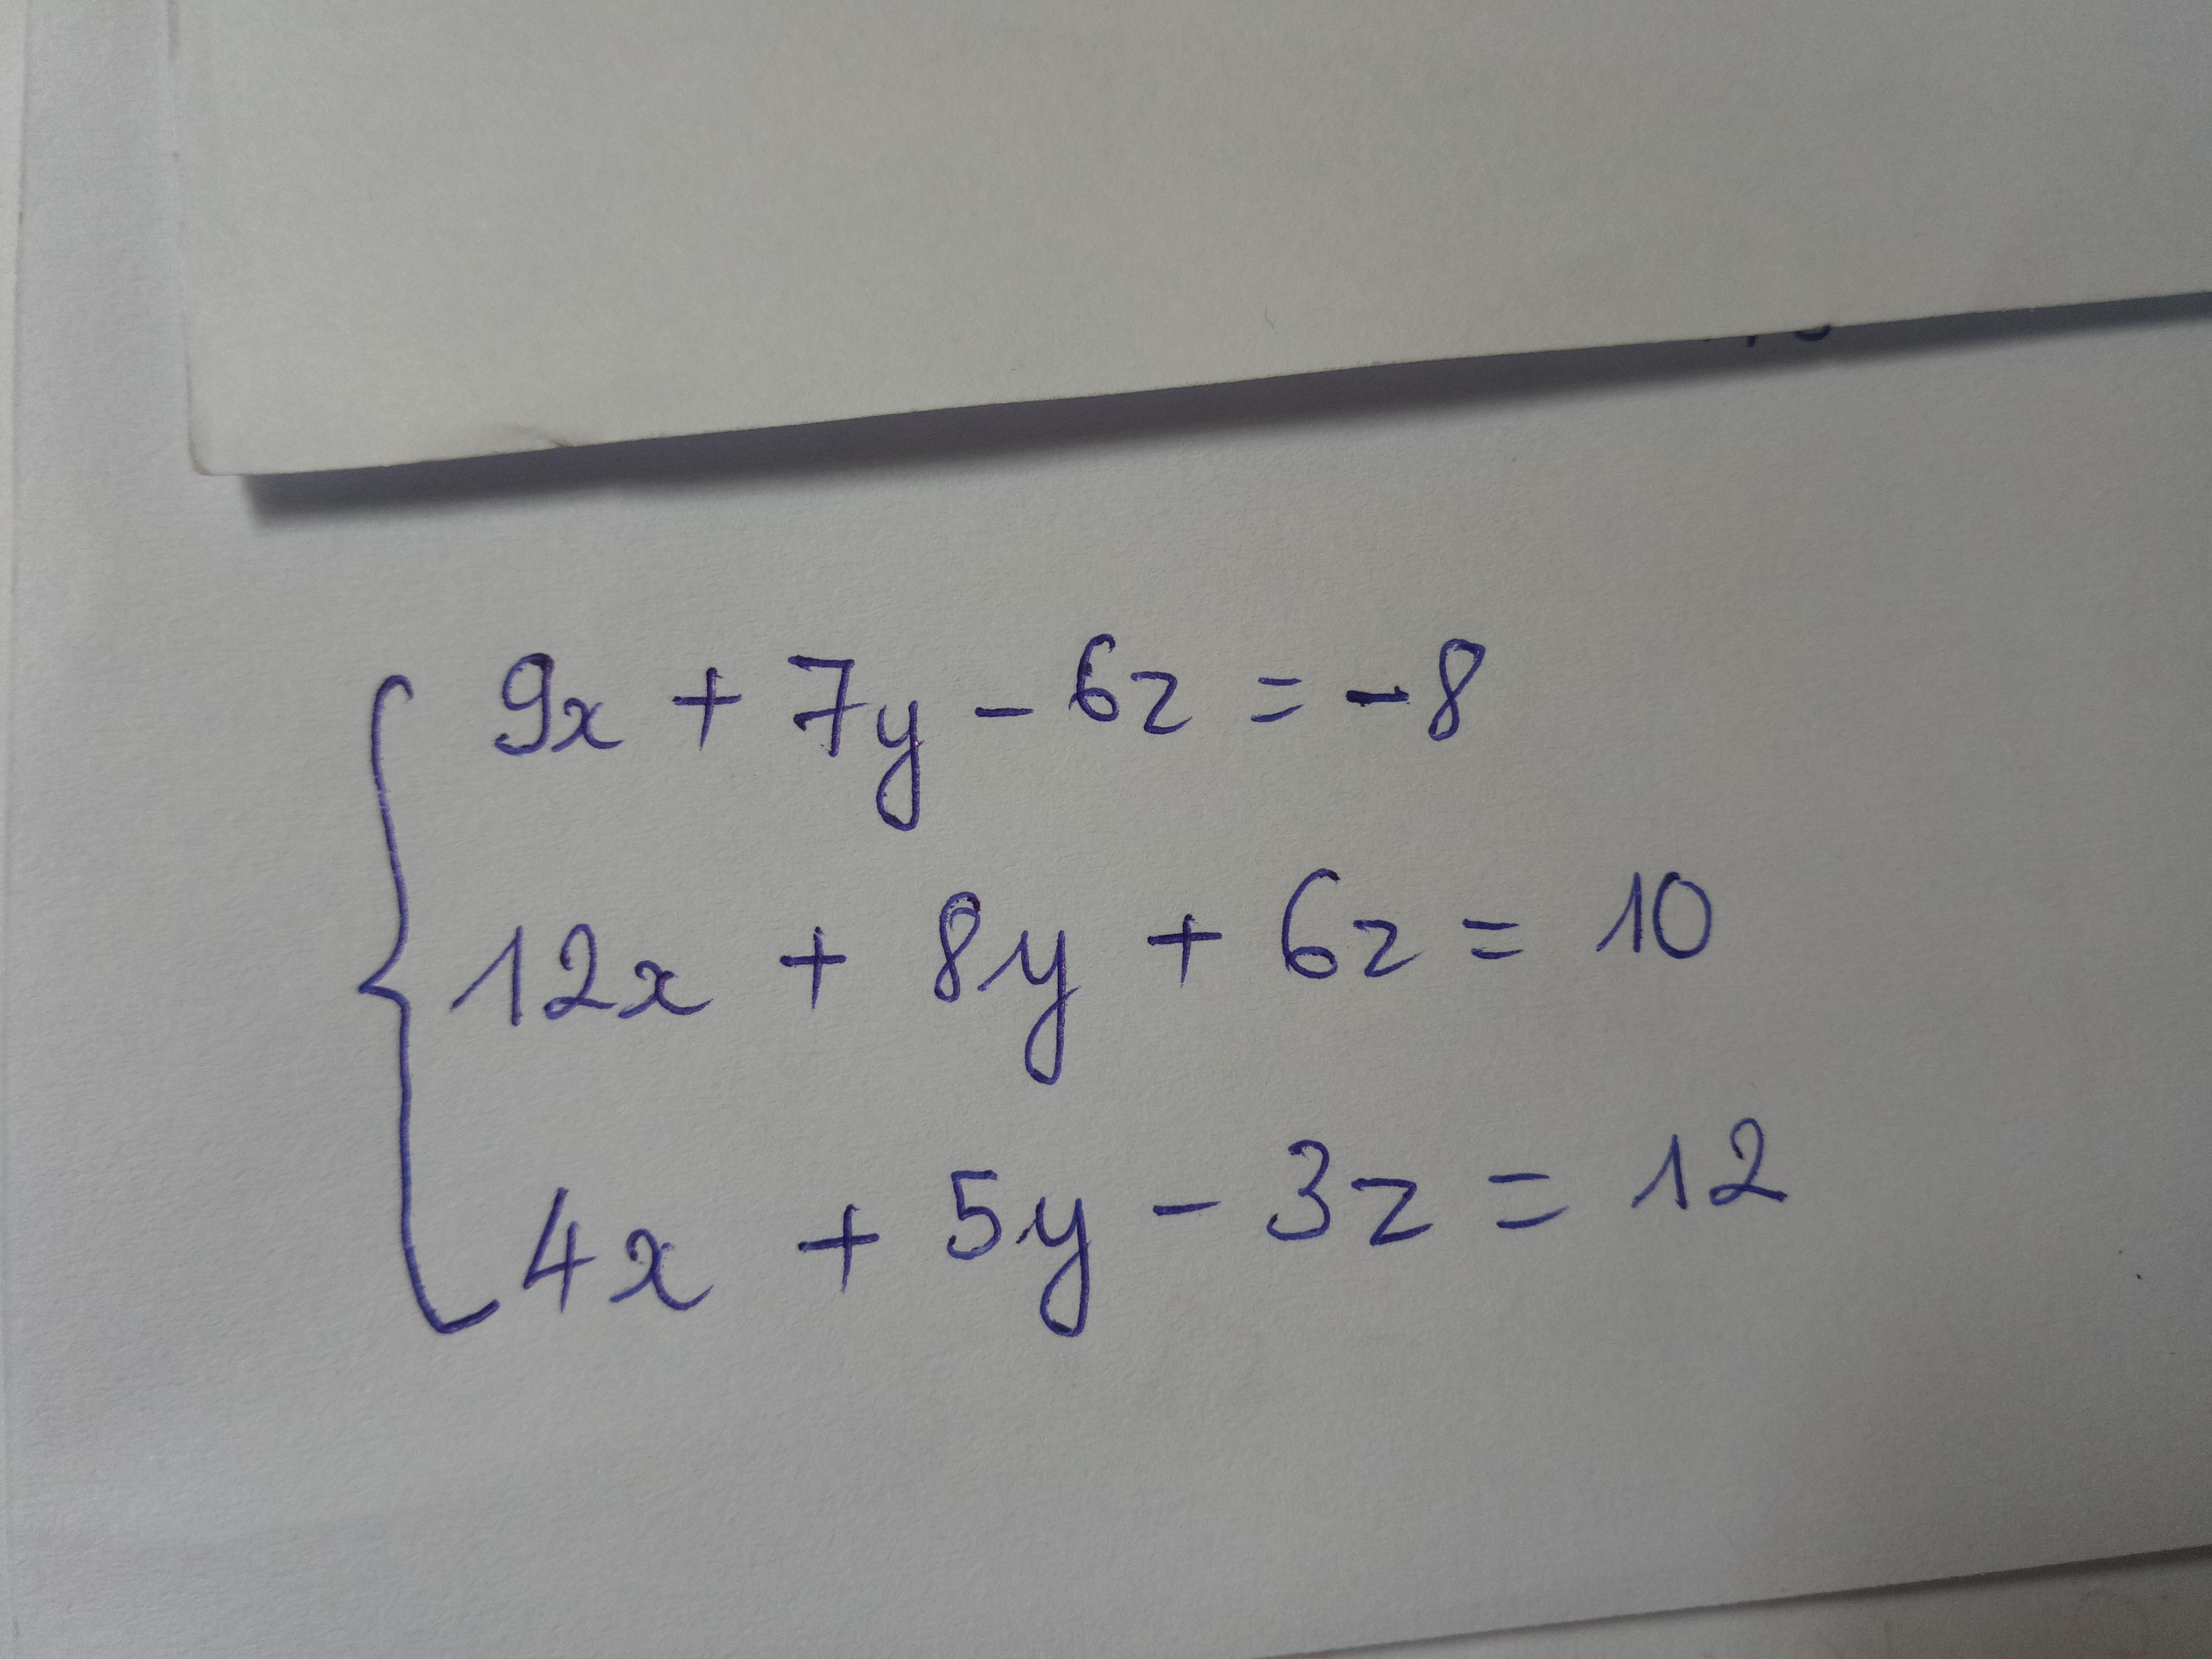 9x + 7y - 6z = -8
12x + 8y + 6z = 10
4x + 5y - 3z = 12